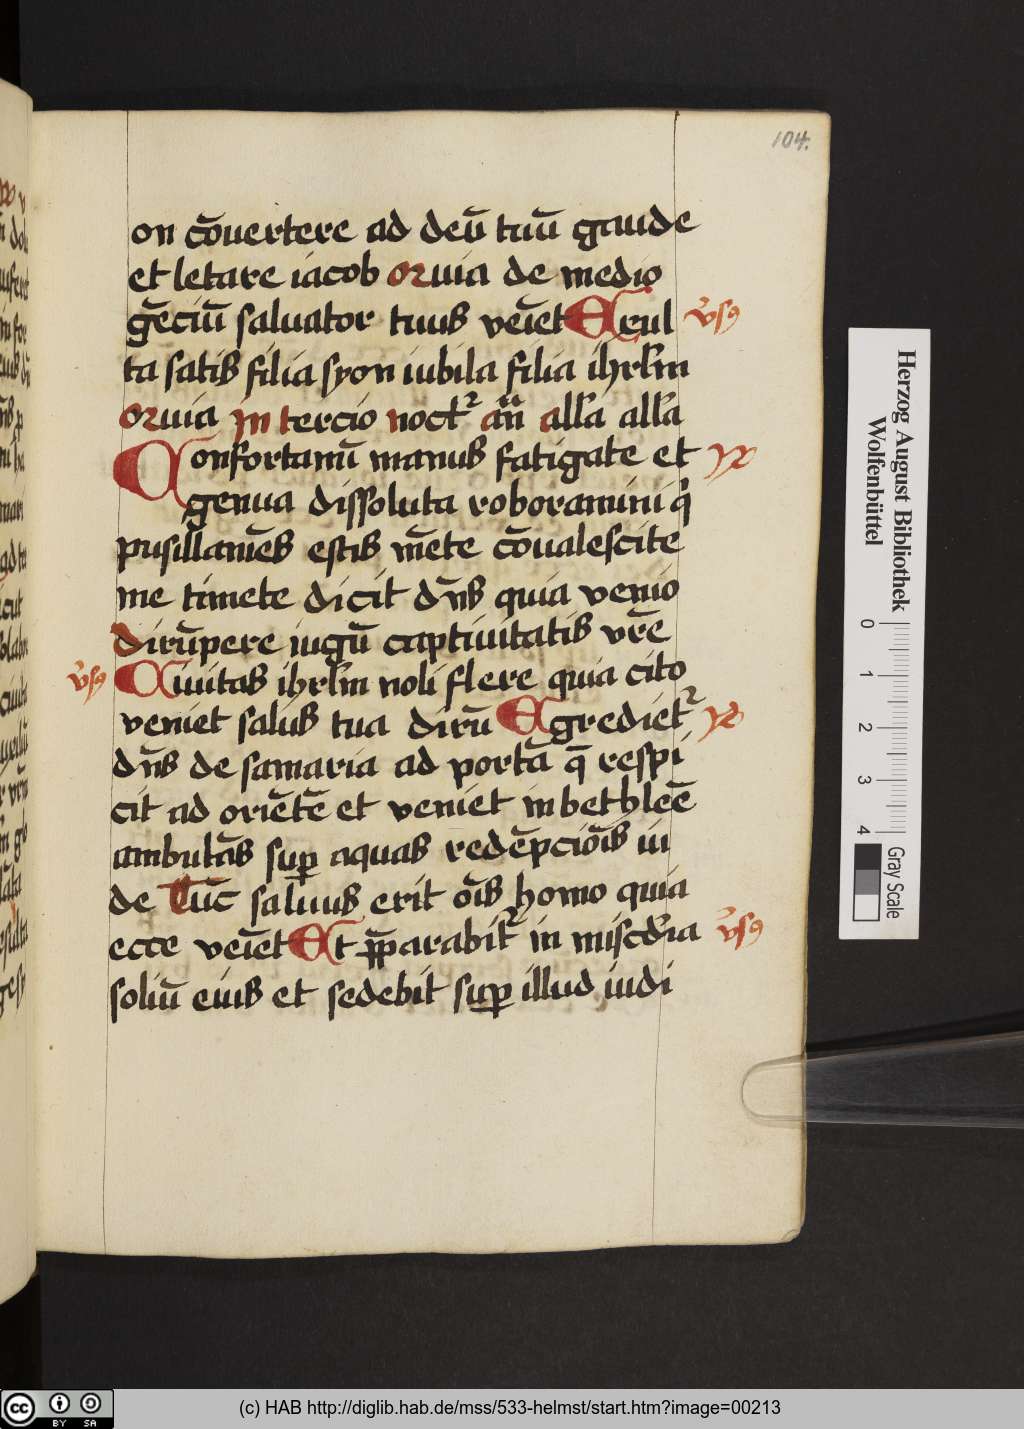 104.
on cōuertere ad deū tuū gaude
et letare iacob oruia de medio
gēciū saluator tuus veīet Exul vs9
ta satis filia syon iubila filia ihrl'm
oruia In tercio noct² an̄ alla alla
Confortamī manus fatigate et R
genua dissoluta roboramini q̇
pusillamēs estis mēte cōualescite
me timete dicit dn̄s quia venio
dirūpere iugū captiuitatis vrē
vs9 Ciuitas ihrl'm noli flere quia cito
veniet salus tua dirū Egrediet² R
dn̄s de samaria ad portā q̄ respi
cit ad oriētē et veniet in bethleē
ambulās sup aquas redēpciōis iu
de Tūc saluus erit oīs homo quia
ecce veīet Et p̄parabit² in miscd'ia vs9
soliū eius et sedebit sup illud iudi
Herzog August Bibliothek
Wolfenbüttel
0 1 2 3 4
Gray Scale
cc BY SA
(c) HAB http://diglib.hab.de/mss/533-helmst/start.htm?image=00213